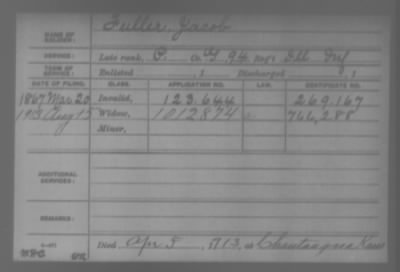 Fuller, Jacob
NAME OF SOLDIER:
SERVICE: Late rank, P. Co. G, 94 Reg't Ill Inf
TERM OF SERVICE: Enlisted , 1 Discharged , 1
DATE OF FILING. CLASS. APPLICATION NO. LAW. CERTIFICATE NO.
1867 Mar 20 Invalid, 123.644 269.167
1913 Aug 15 Widow, 1012874 766,288
Minor,
ADDITIONAL SERVICES:
REMARKS:
Died Apr 5, 1913, at Chautauqua Kans